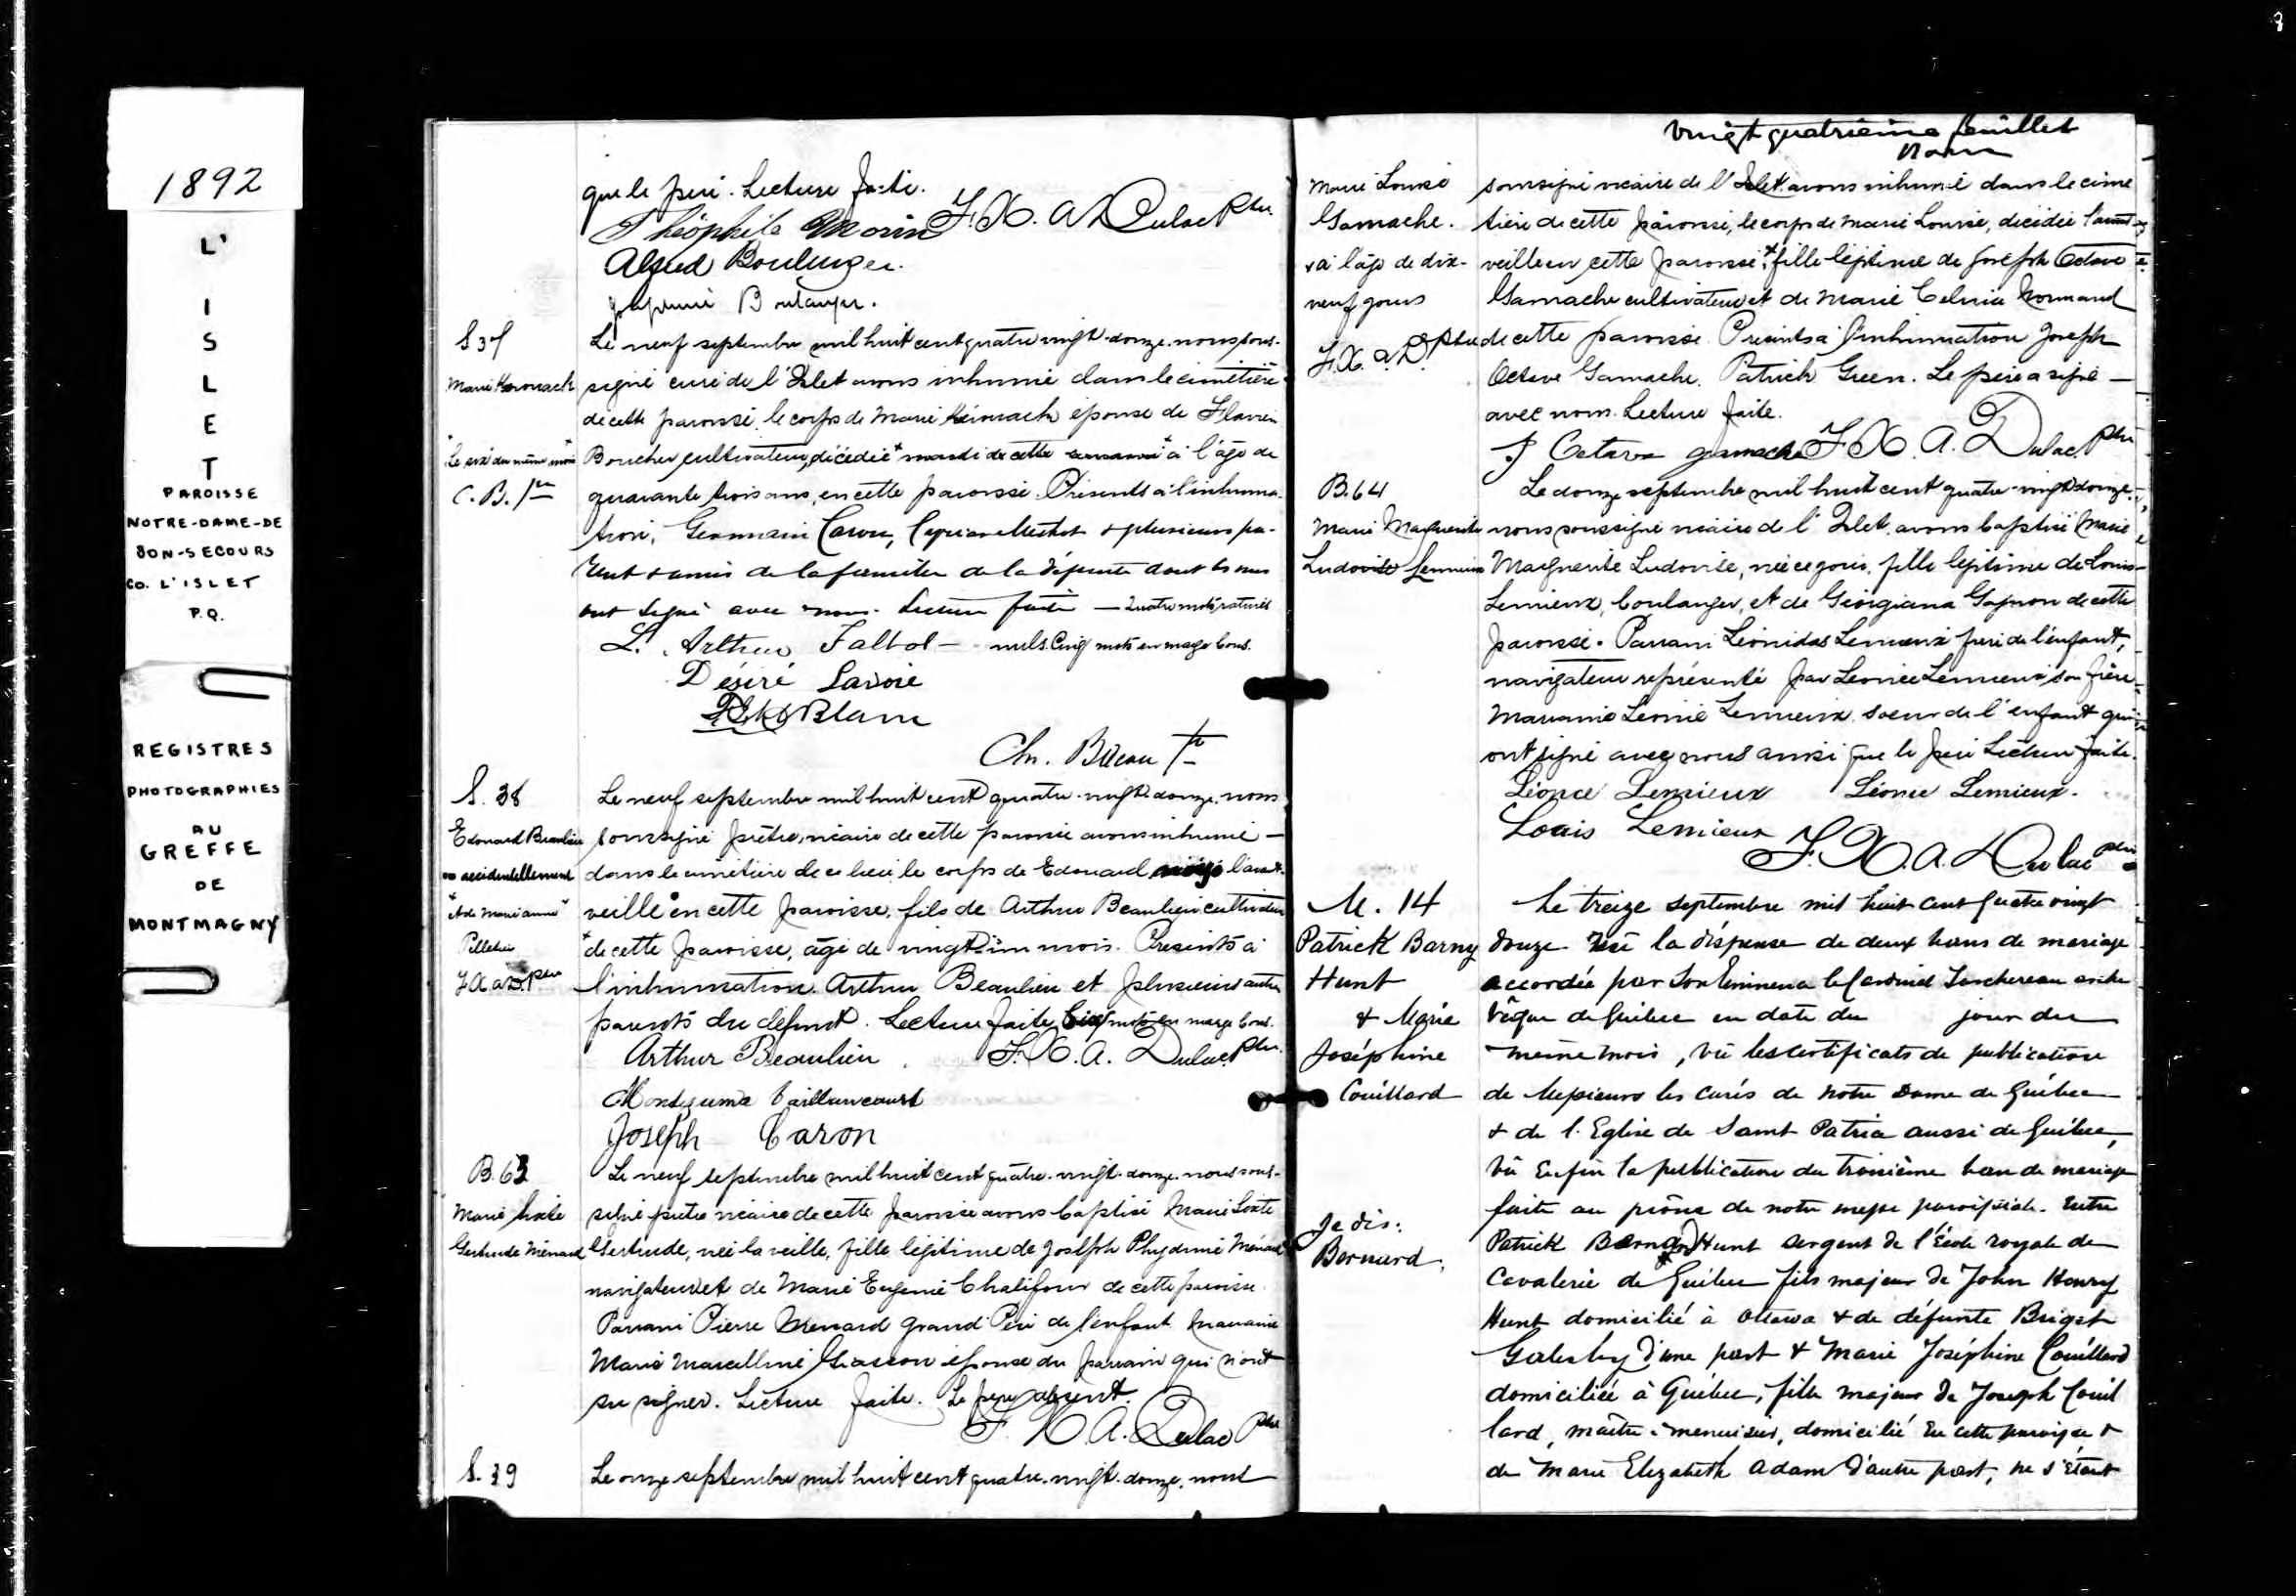 1892
L'
I
S
L
E
T
PAROISSE
NOTRE-DAME-DE
BON-SECOURS
CO. L'ISLET
P.Q.
REGISTRES
PHOTOGRAPHIES
AU
GREFFE
DE
MONTMAGNY
que le père. Lecture faite.
Théophile Morin F. X. A. Dulac Ptre
Alfred Boulanger.
Boulanger.
S 37
Marie Kerouack
"Le six du même mois"
C. B. Ptre
Le neuf septembre mil huit cent quatre vingt-douze. nous sous-
signé curé de l'Islet avons inhumé dans le cimetière
de cette paroisse, le corps de Marie Kérouack épouse de Flavien
Boucher cultivateur, décédée + mardi de cette semaine à l'âge de
quarante trois ans, en cette paroisse. Présents à l'inhuma-
tion, Germain Caron, Cyprien & plusieurs pa-
rents & amis de la famille de la défunte dont les uns
ont signé avec nous. Lecture faite — Quatre mots raturés
L. Arthur Talbot — nuls. Cinq mots en marge bons.
Désiré Lavoie
Blanc
Ch. Bacon Ptre
S. 38
Edouard Beaulieu
accidentellement
"et de Marie anne"
Pelletier
F X A D. Ptre
Le neuf septembre mil huit cent quatre-vingt-douze, nous
soussigné prêtre, vicaire de cette paroisse avons inhumé —
dans le cimetière de ce lieu le corps de Edouard noyé l'avant-
veille en cette paroisse, fils de Arthur Beaulieu cultivateur
+ de cette paroisse, âgé de vingt-un mois. Présents à
l'inhumation. Arthur Beaulieu et plusieurs autres
parents du défunt. Lecture faite. mots en marge bons.
Arthur Beaulieu. F. X. A. Dulac Ptre.
Montzuma Vaillancourt
Joseph Caron
B. 63
Marie Sixte
Gertrude Ménard
Le neuf septembre mil huit cent quatre-vingt-douze. nous sous-
signé prêtre vicaire de cette paroisse avons baptisé Marie Sixte
Gertrude, née la veille, fille légitime de Joseph Phydime Ménard
navigateur et de Marie Eugenie Chalifour de cette paroisse.
Parrain Pierre Menard grand Père de l'enfant marraine
Marie Marcelline Giasson épouse du parrain qui n'ont
su signer. Lecture faite. Le père absent.
F. X. A. Dulac Ptre
S. 39
Le onze septembre mil huit cent quatre-vingt-douze, nous
vingt quatrième feuillet
Marie Louise
Gamache.
+ à l'âge de dix-
neuf jours
F. X. A. D. Ptre
soussigné vicaire de l'Islet avons inhumé dans le cime
tière de cette paroisse, le corps de Marie Louise, décédée l'avant-
veille en cette paroisse, + fille légitime de Joseph Octave
Gamache cultivateur et de Marie Normand
de cette paroisse. Présents à l'inhumation Joseph
Octave Gamache. Patrick Green. Le père a signé —
avec nous. Lecture faite.
J Octave gamache F. X. A. Dulac Ptre
B. 64
Marie Marguerite
Ludovise Lemieux
Le douze septembre mil huit cent quatre-vingt-douze,
nous soussigné vicaire de l'Islet, avons baptisé Marie
Marguerite Ludovise, née ce jour, fille légitime de Louis
Lemieux, boulanger, et de Géorgiana Gagnon de cette
paroisse. Parrain Léonidas Lemieux frère de l'enfant,
navigateur représenté par Léonce Lemieux son frère
Marraine Léonie Lemieux soeur de l'enfant qui
ont signé avec nous ainsi que le père Lecture faite.
Léonce Lemieux Léonie Lemieux.
Louis Lemieux F. X. A. Dulac Ptre
M. 14
Patrick Barny
Hunt
& Marie
Joséphine
Couillard
Je dis:
Bernard.
Le treize septembre mil huit cent quatre vingt
douze vu la dispense de deux bans de mariage
accordée par Son Eminence le Cardinal Taschereau arche
vêque de Québec en date du jour du
même mois, vu les certificats de publication
de Messieurs les curés de Notre Dame de Québec
& de l'Eglise de Saint Patrice aussi de Québec,
vu enfin la publication du troisième ban de mariage
faite au prône de notre messe paroissiale. Entre
Patrick Hunt Sergent de l'École royale de
Cavalerie de Québec fils majeur de John Henry
Hunt domicilié à Ottawa & de défunte Briget
d'une part & Marie Joséphine Couillard
domiciliée à Québec, fille majeure de Joseph Couil
lard, maître-menuisier, domicilié en cette paroisse &
de Marie Elizabeth Adam d'autre part, ne s'étant